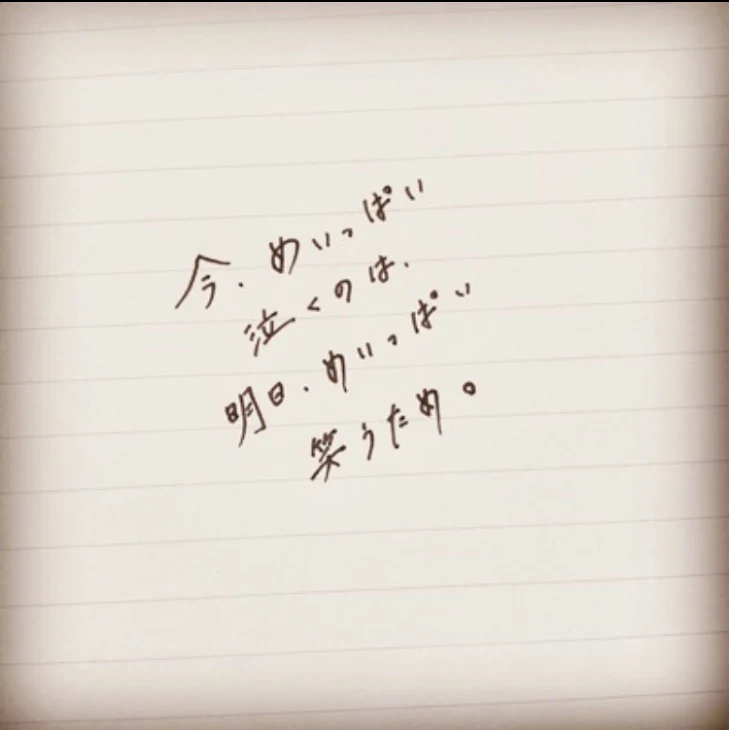 今、めいっぱい
泣くのは、
明日、めいっぱい
笑うため。